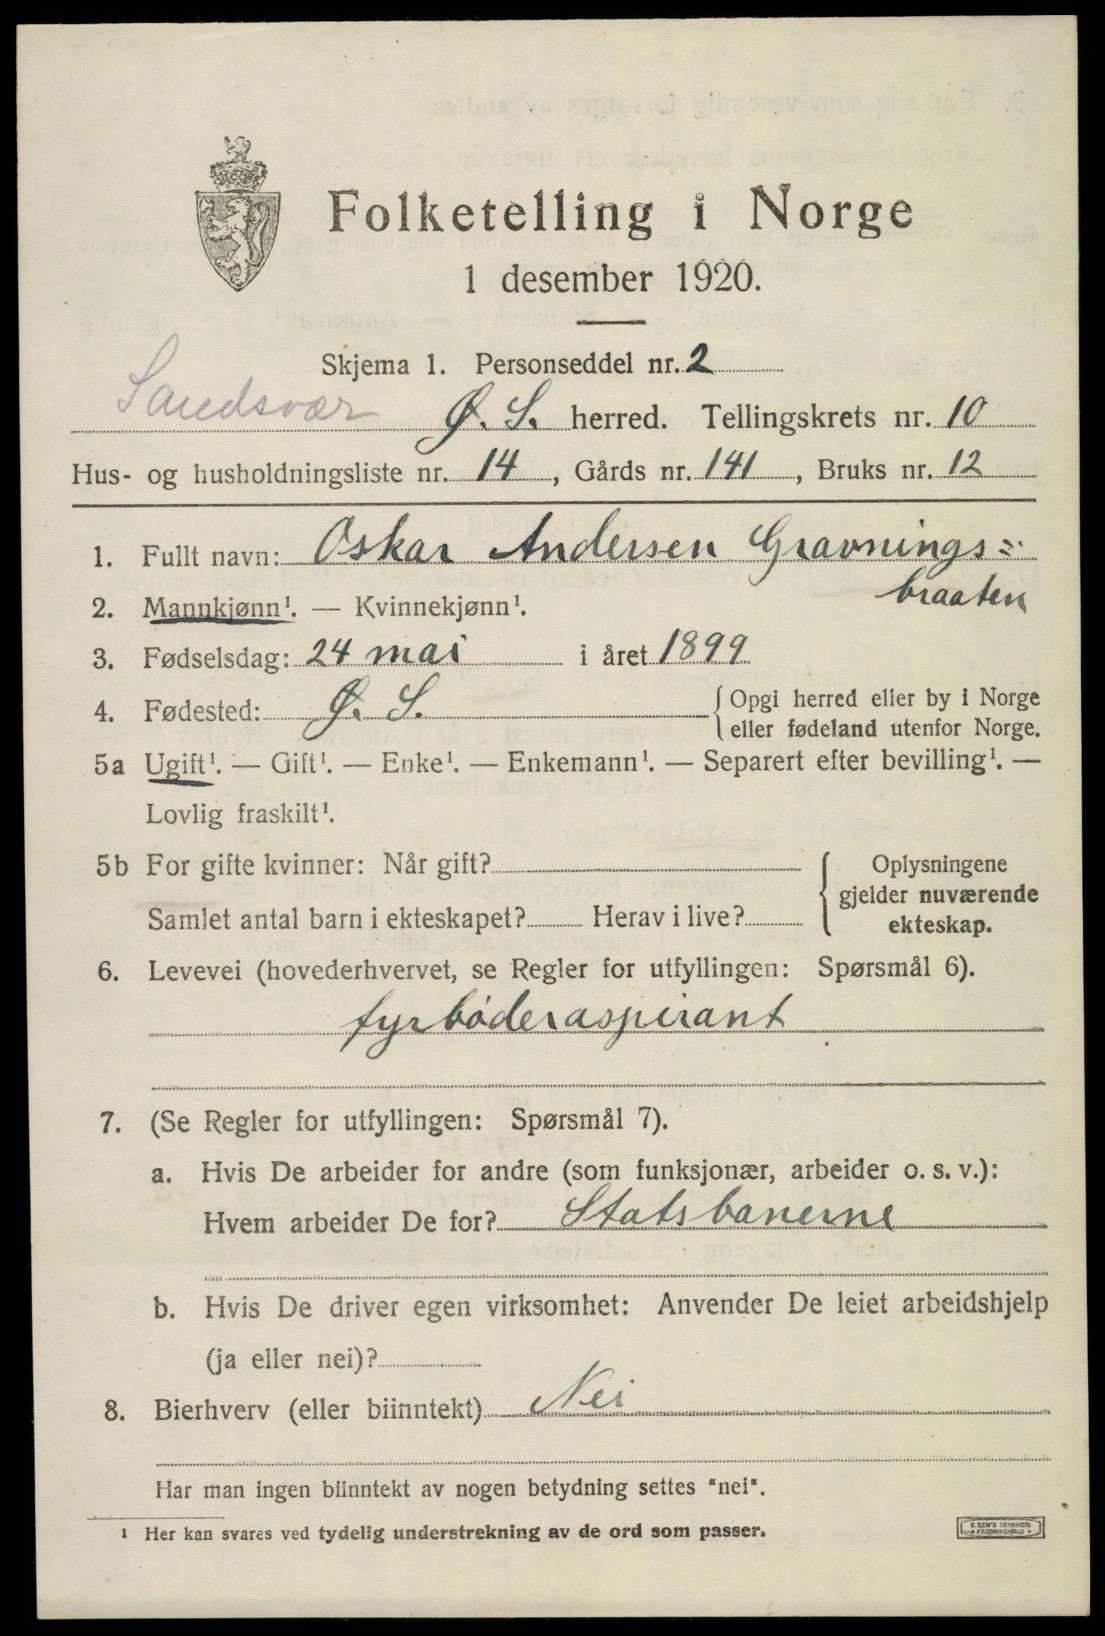 Folketelling i Norge
1 desember 1920.
Skjema 1. Personseddel nr. 2
Sandsvær Ø. S. herred. Tellingskrets nr. 10
Hus- og husholdningsliste nr. 14, Gårds nr. 141, Bruks nr. 12
1. Fullt navn: Oskar Andersen Gravnings=
braaten
2. Mannkjønn¹. — Kvinnekjønn¹.
3. Fødselsdag: 24 mai i året 1899
4. Fødested: Ø. S. Opgi herred eller by i Norge
eller fødeland utenfor Norge.
5a Ugift¹. — Gift¹. — Enke¹. — Enkemann¹. — Separert efter bevilling¹. —
Lovlig fraskilt¹.
5b For gifte kvinner: Når gift?
Samlet antal barn i ekteskapet? Herav i live?
Oplysningene
gjelder nuværende
ekteskap.
6. Levevei (hovederhvervet, se Regler for utfyllingen: Spørsmål 6).
fyrbøderaspirant
7. (Se Regler for utfyllingen: Spørsmål 7).
a. Hvis De arbeider for andre (som funksjonær, arbeider o. s. v.):
Hvem arbeider De for? Statsbanerne
b. Hvis De driver egen virksomhet: Anvender De leiet arbeidshjelp
(ja eller nei)?
8. Bierhverv (eller biinntekt) Nei
Har man ingen biinntekt av nogen betydning settes "nei".
¹ Her kan svares ved tydelig understrekning av de ord som passer.
E. SEM'S TRYKKERI
FREDRIKSHALD